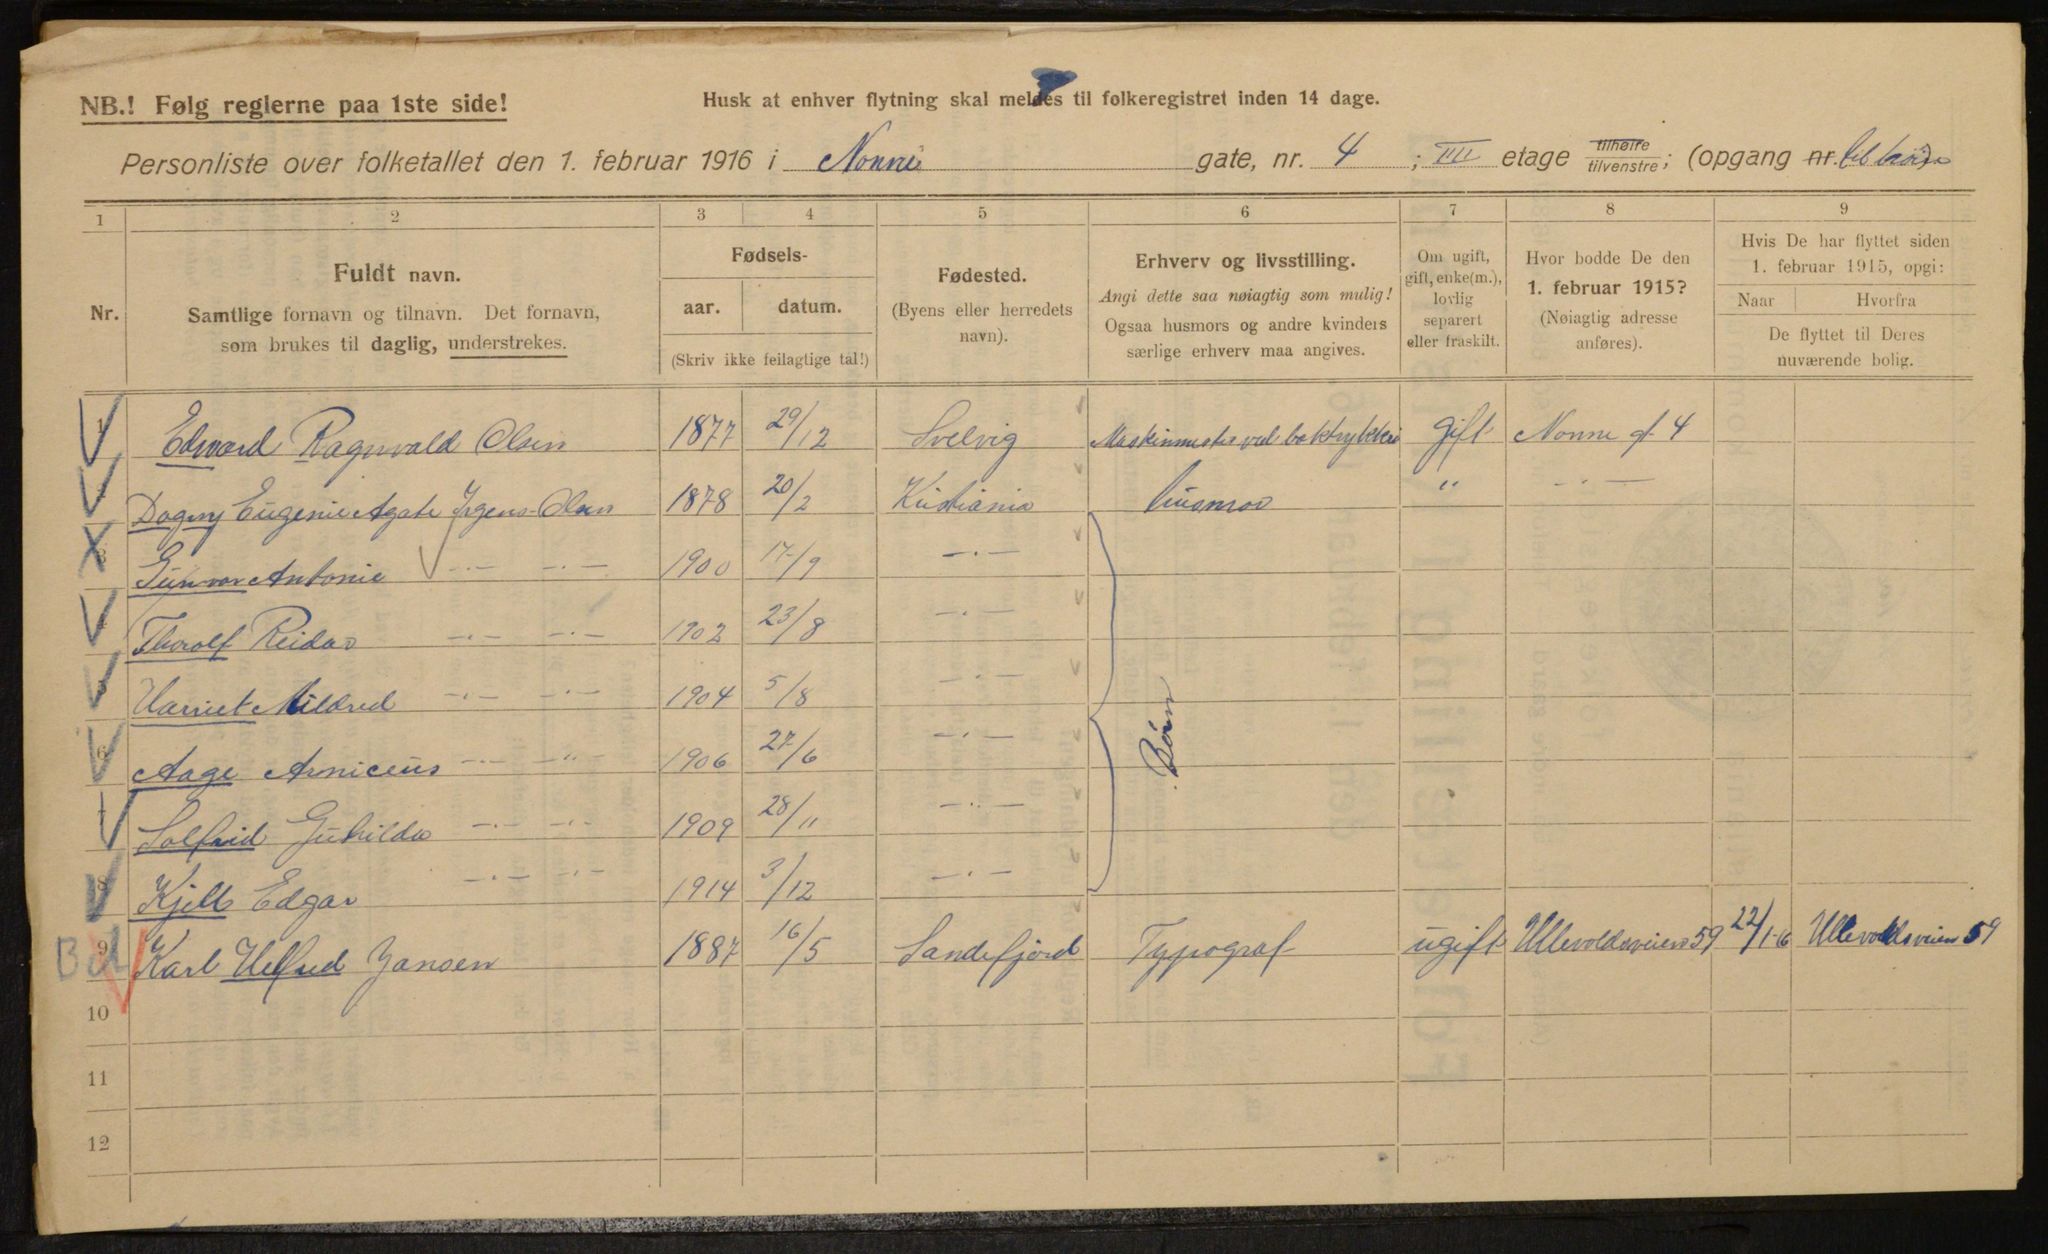 NB.! Følg reglerne paa 1ste side!
Husk at enhver flytning skal meldes til folkeregistret inden 14 dage.
Personliste over folketallet den 1. februar 1916 i Nonne gate, nr. 4 ; III etage tilhøire tilvenstre; (opgang nr.
1 2 3 4 5 6 7 8 9
Nr.
Fuldt navn.
Samtlige fornavn og tilnavn. Det fornavn,
som brukes til daglig, understrekes.
Fødsels-
aar. datum.
(Skriv ikke feilagtige tal!)
Fødested.
(Byens eller herredets
navn).
Erhverv og livsstilling.
Angi dette saa nøiagtig som mulig!
Ogsaa husmors og andre kvinders
særlige erhverv maa angives.
Om ugift,
gift, enke(m.),
lovlig
separert
eller fraskilt.
Hvor bodde De den
1. februar 1915?
(Nøiagtig adresse
anføres).
Hvis De har flyttet siden
1. februar 1915, opgi:
Naar Hvorfra
De flyttet til Deres
nuværende bolig.
Edward Ragnvald Olsen 1877 29/12 Svelvig Maskinmester ved boktrykkeri gift Nonne gt 4
Dagny Eugenie Agate Irgens-Olsen 1878 20/2 Kristiania Husmor " -"-
3 Gunvor Antonie -"- -"- 1900 17/9 -"-
Thorolf Reidar -"- -"- 1902 23/8 -"-
Harriet Mildred -"- -"- 1904 5/8 -"-
6 Aage Arniceus -"- -"- 1906 27/6 -"- Børn
Solfrid -"- -"- 1909 28/11 -"-
8 Kjell Edgar -"- -"- 1914 3/12 -"-
9 Karl Helfred Jansen 1887 16/5 Sandefjord Typograf ugift Ullevoldsveien 59 22/1-16 Ullevoldsveien 59
10
11
12